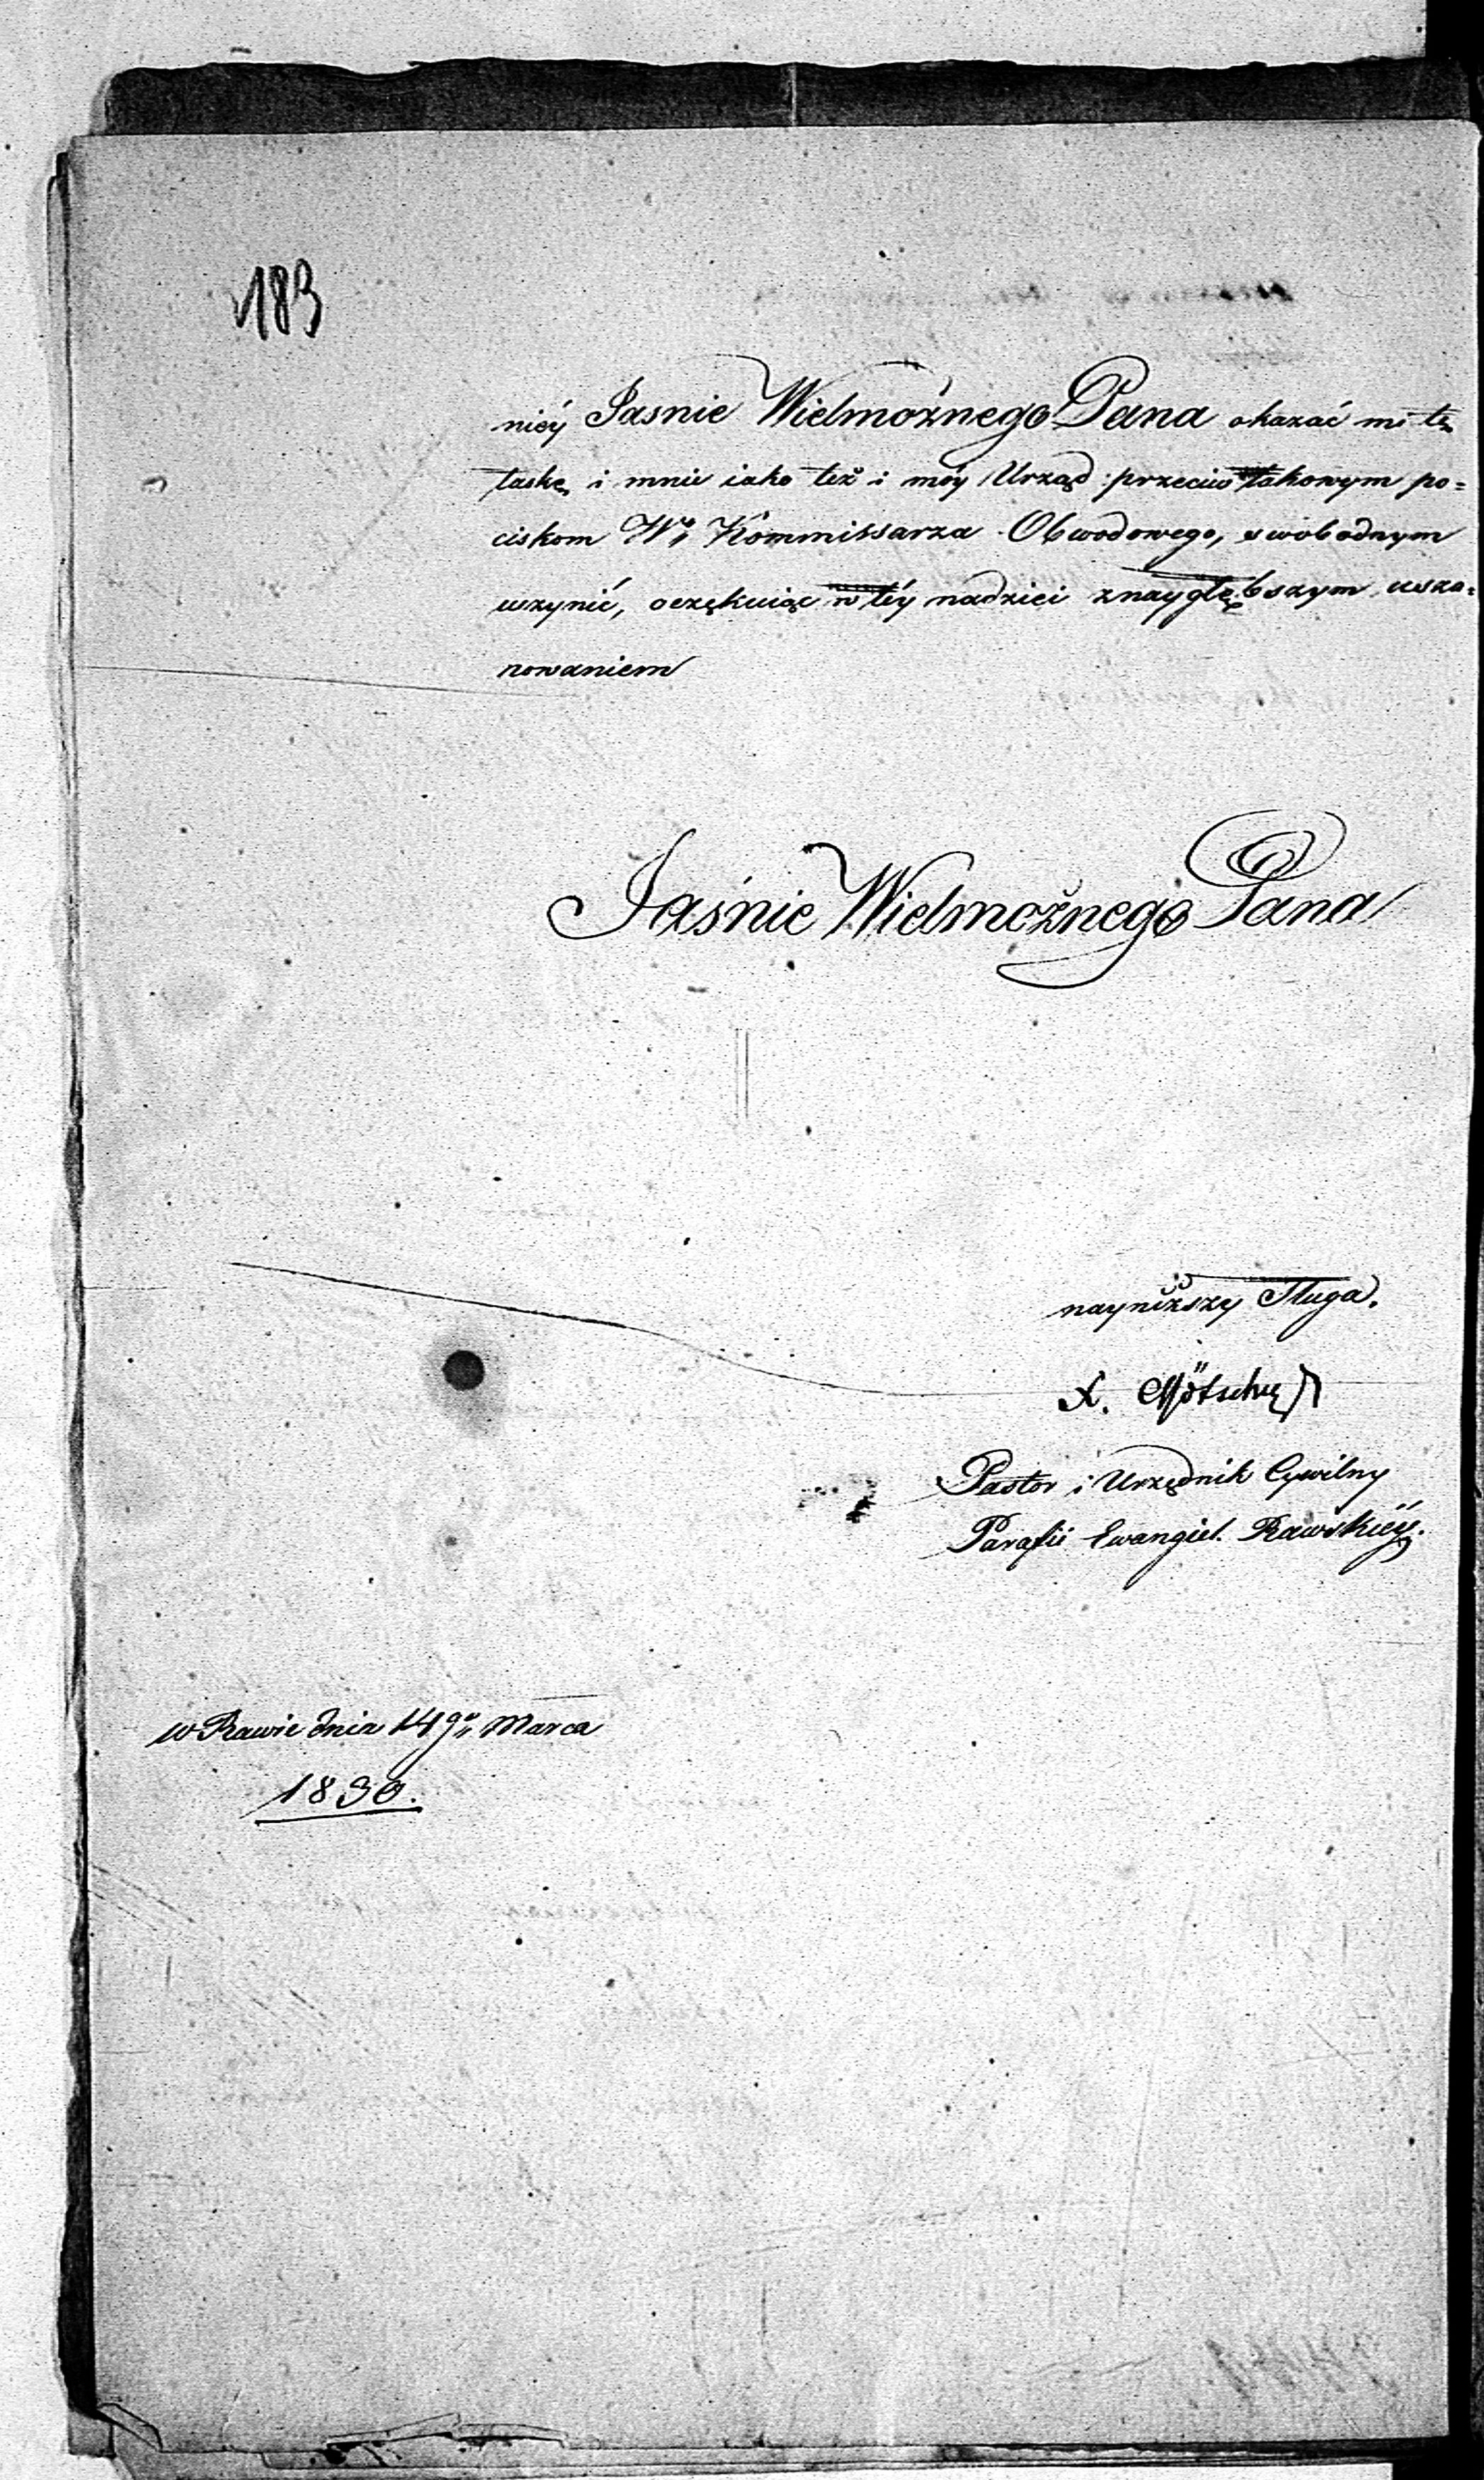 183
niéy Jasnie Wielmożnego Pana okazać mi tę
łaskę i mnie iako też i móy Urząd przeciw takowym po=
ciskom Wo Kommissarza Obwodowego, swobodnym
uczynić, oczękuiąc w téy nadziei znaygłębszym usza=
nowaniem
Jaśnie Wielmożnego Pana
nayniższy Sługa.
X.
Pastor i Urzędnik Cywilny
Parafii Ewangiel. Rawskiéy.
w Rawie dnia 14go Marca
1830.